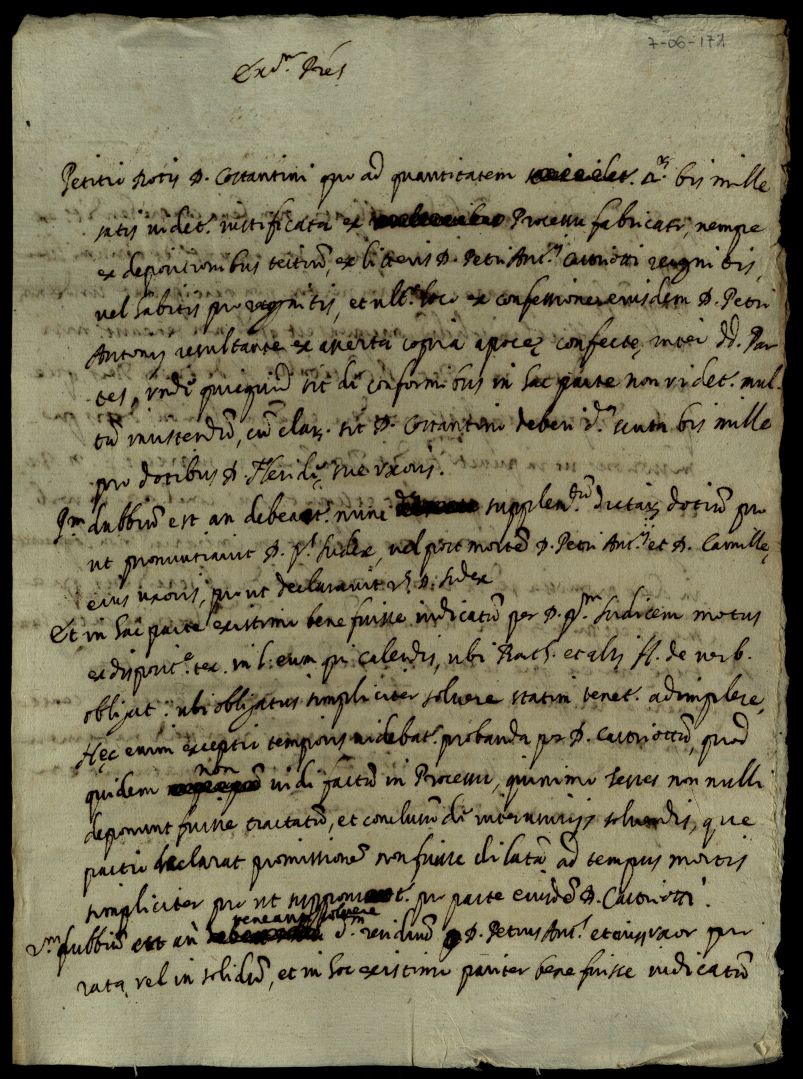 7-06-171
Petitio Dotis D. Costantini quo ad quantitatem bis mille
satis videt.r iustificata ex Processu fabricato, nempe
ex depositionibus testiũ, ex litteris D. Petri Ant.ij Castriotti
vel habitis pro et ult.o loco ex confessione eiusdem D. Petri
Antonij resultante ex asserta copia apocę confectę inter dd. Par
tes, undè quicquid sit dè conformibus in hac parte non videt.r mul
tũ insistendũ, cũ sit D. Costantino deberi scuta bis mille
pro dotibus D. suę uxoris.
P.m dubbiũ est an debeat.r nunc dotiũ pro
ut pronuntiavit D. p.s Iudex, vel post mortẽ D. Petri Ant.ij et D. Camillę
eius uxoris, prout declaravit D. Iudex
Et in hac parte existimo bene fuisse iudicatũ per D. p.m Iudicem motus
ex disposit.e tex. in l. eum qui calendis, ubi et alij ff. de verb.
obligat. ubi obligatus simpliciter solvere statim tenet.r adimplere,
Hęc enim exceptio temporis videbat.r probanda per D. Castriottũ, quod
quidem non vidi factũ in Processu, quinimo testes non nulli
deponunt fuisse tractatũ, et conclusũ dè solvendis, que
pactio declarat promissionẽ non fuisse dilatã ad tempus mortis
simpliciter pro ut pro parte eiusdẽ D. Castriotti.
2.m dubbiũ est an teneant.r solvere D. Petrus Ant.s et eius uxor pro
rata, vel in solidũ, et in hoc existimo pariter bene fuisse iudicatũ